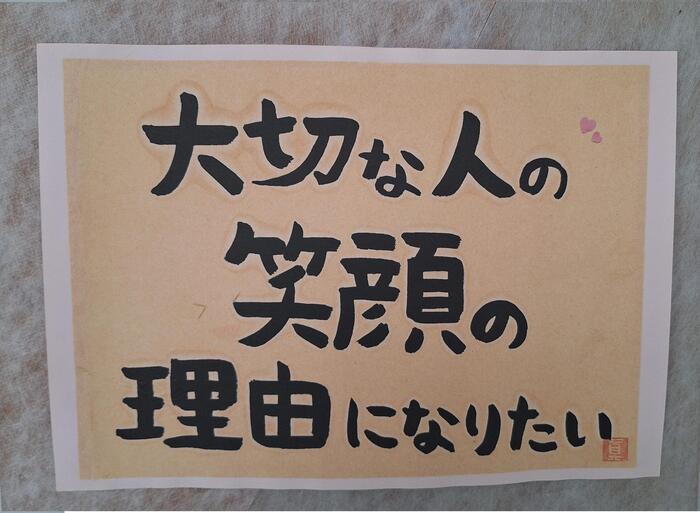 大切な人の
笑顔の
理由になりたい
眞